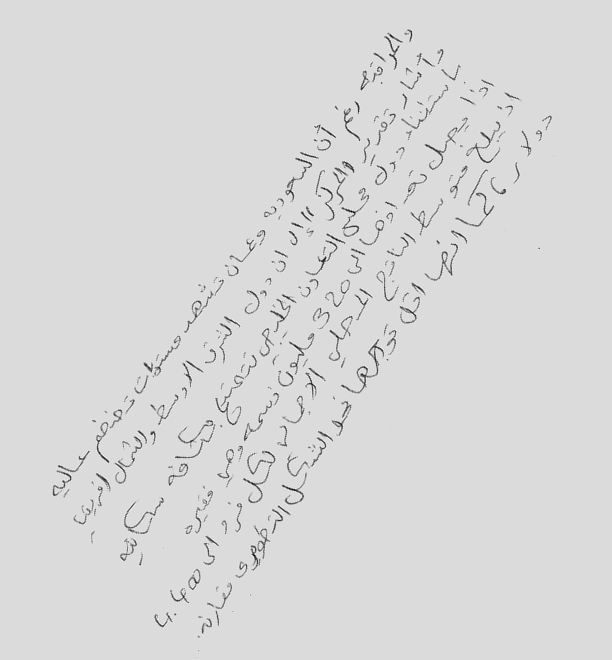 والمراقبه رغم أن السعوديه وعمان تشهد مستويات تضخم عاليه
وأشار تقرير "المركز" إلى ان دول الشرق الاوسط والشمال افريقي
باستثناء دول مجلس التعاون الخليجي تتمتع بكثافه سكانيه
اذا يصل تعدادها الى 320 مليون نسمه وهي فقيره
اذ يبلغ متوسط الناتج المحلي الاجمالي لكل فرد الى 4.400
دولار، كما انها اقل توجها نحو الشكل التطويري مقارنه